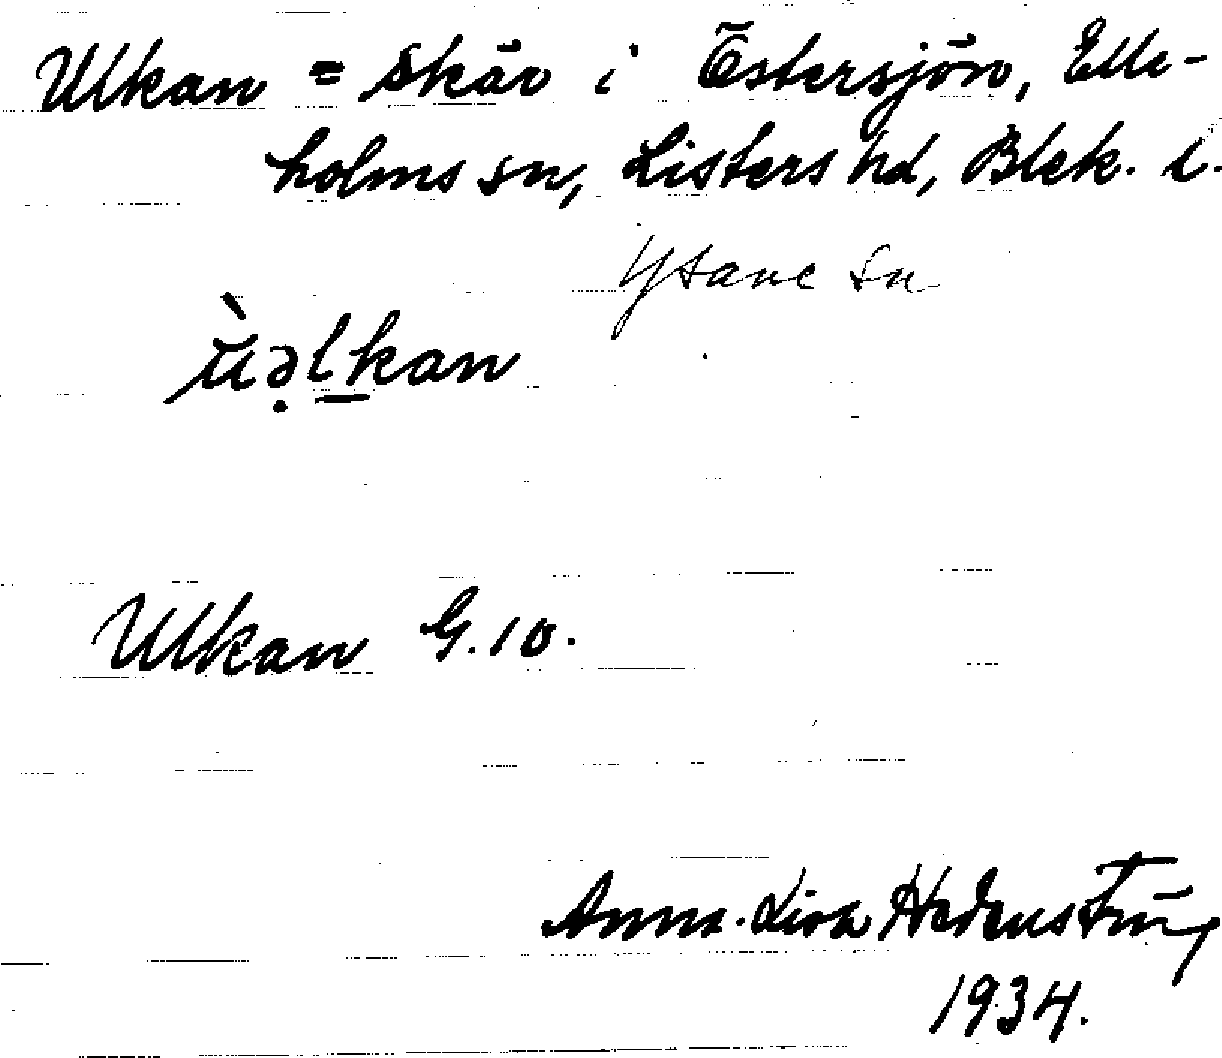 Ulkan = skär i Östersjön, Elle-
holms sn, Listers hd, Blek. l.
Ysane sn
Ulkan G.10.
Anna-Lisa Hedenstüng
1934.